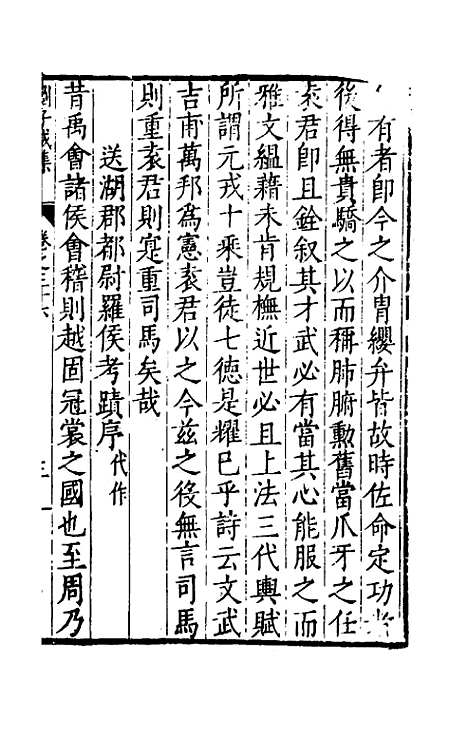 有者即今之介冑纓弁皆故時佐命定功者
後得無貴驕之以而稱肺腑勲舊當爪牙之任
袁君即且銓叙其才武必有當其心能服之而
雅文縕藉未肯規橅近世必且上法三代輿賦
所謂元戎十乘豈徒七德是耀已乎詩云文武
吉甫萬邦為憲袁君以之今兹之役無言司馬
則重袁君則寔重司馬矣哉
送湖郡都尉羅侯考蹟序代作
昔禹會諸侯會稽則越固冠裳之國也至周乃
子威集
卷之三十六
三